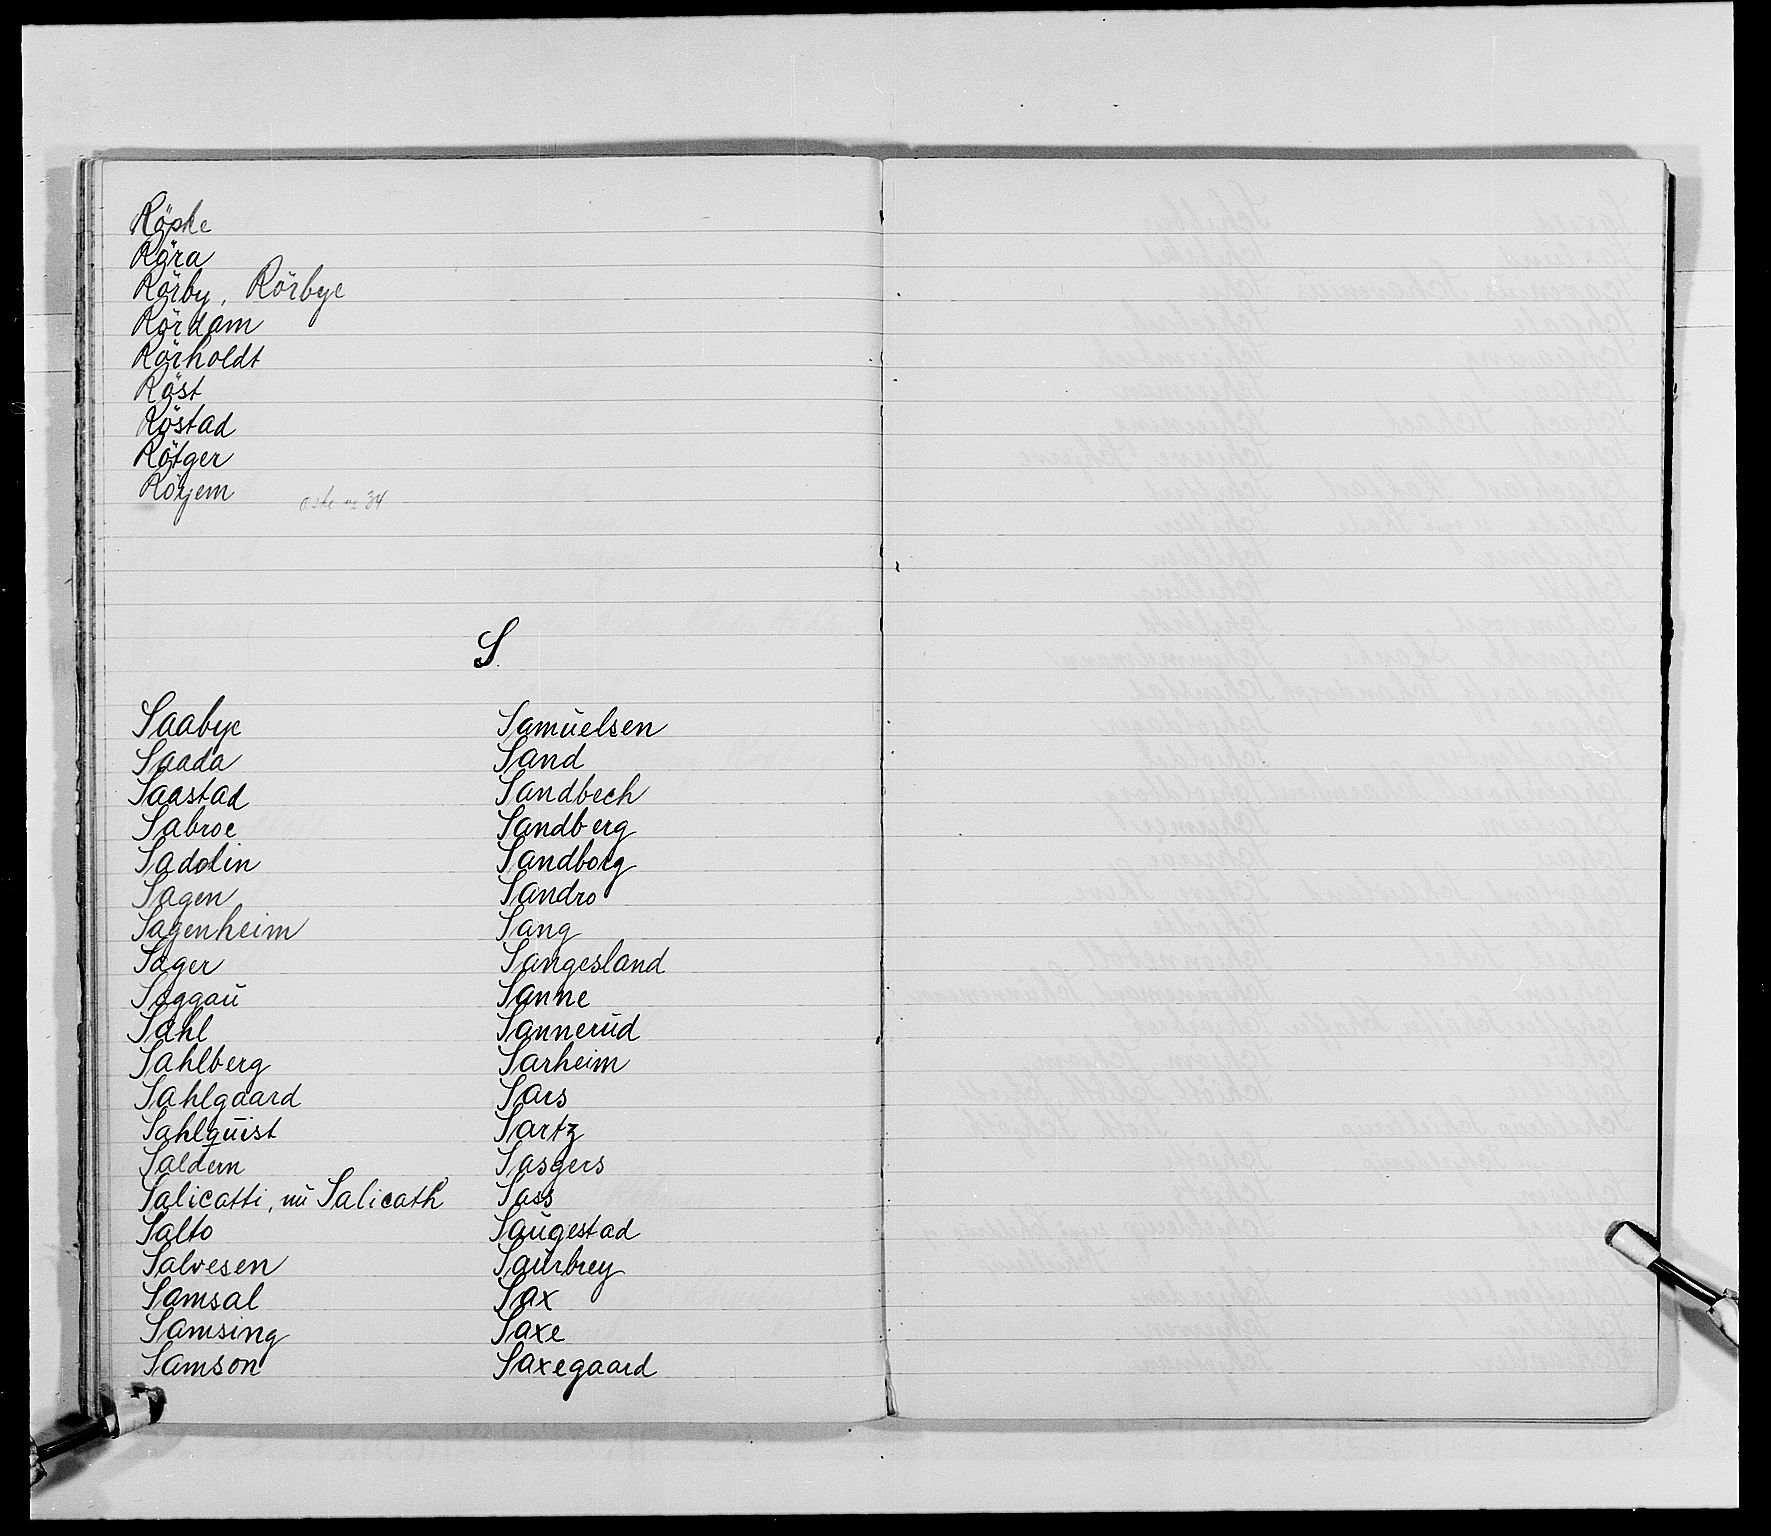 Röpke
Röra
Rörby, Rörbye
Rördam
Rörholdt
Röst
Röstad
Rötger
Röyem
æske nr 34
S.
Saabye
Saada
Saastad
Sabroe
Sadolin
Sagen
Sagenheim
Sager
Saggau
Sahl
Sahlberg
Sahlgaard
Sahlquist
Saldern
Salicatti, nu Salicath
Salto
Salvesen
Samsal
Samsing
Samson
Samuelsen
Sand
Sandbech
Sandberg
Sandborg
Sandro
Sang
Sangesland
Sanne
Sannerud
Sarheim
Sars
Sartz
Sasgers
Sass
Saugestad
Saurbrey
Sax
Saxe
Saxegaard